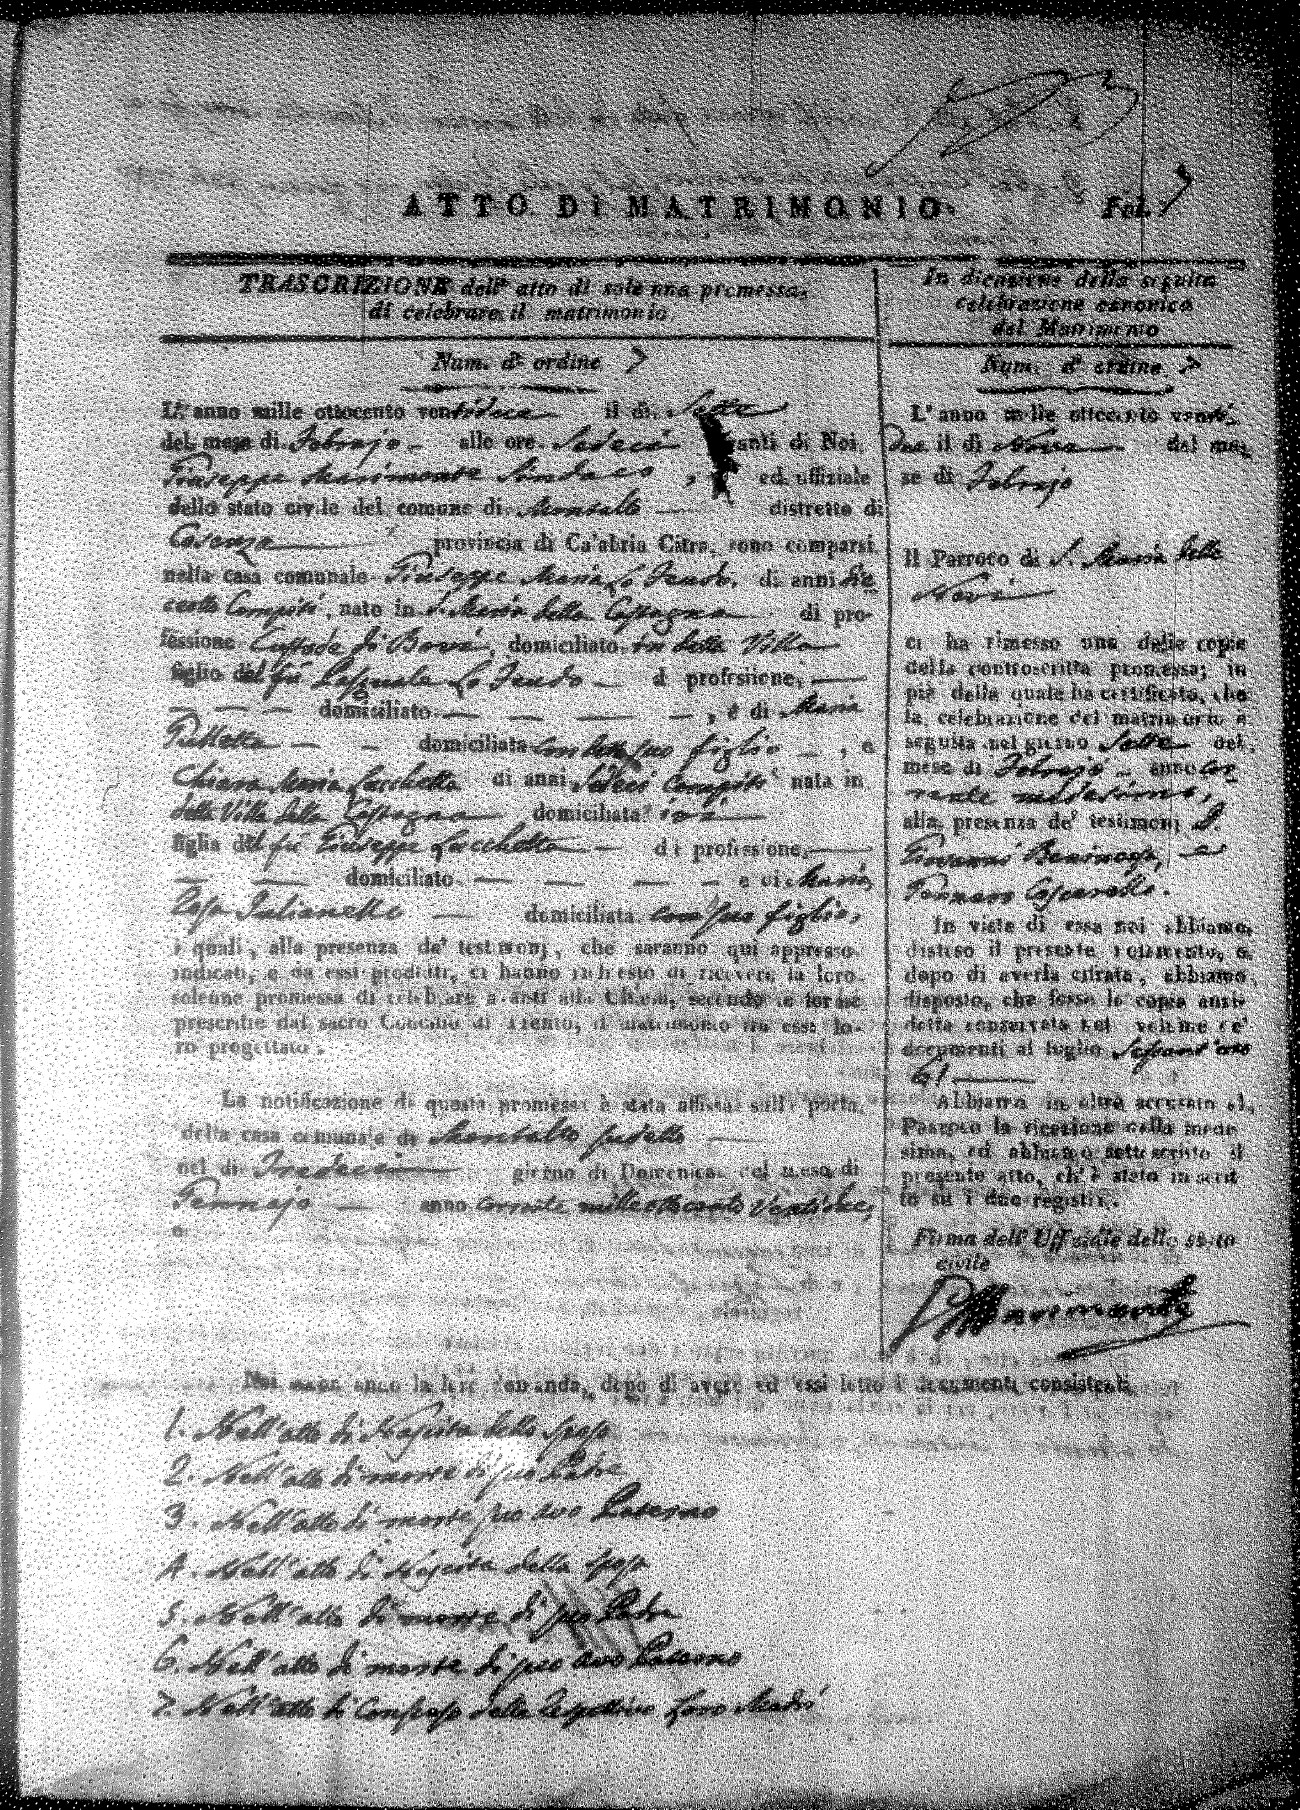 ATTO DI MATRIMONIO.
Fol. 7
TRASCRIZIONE dell' atto di solenna promessa,
di celebrare il matrimonio
Num. d' ordine 7
L' anno mille ottocento ventidue il di Sette
del mese di Febrajo alle ore Sedeci avanti di Noi
Giuseppe Marimonte Sindaco, ed uffiziale
dello stato civile del comune di Montalto distretto di
Cosenza provincia di Calabria Citra, sono comparsi
nella casa comunale Giuseppe Maria Lo Feudo, di anni
Compiti, nato in S. Maria della Castagna di pro-
fessione Custode di Bovi, domiciliato in detta Villa
figlio del fu Pasquale Lo Feudo di professione,
domiciliato , e di Maria
domiciliata con suo figlio , e
Chiara Maria Lucchetta di anni Sedeci Compiti nata in
detta Villa della Castagna domiciliata ivi
figlia del fu Giuseppe Lucchetta di professione,
domiciliato e di Maria
Rosa Julianelli domiciliata con sua figlia,
i quali, alla presenza de' testimonj, che saranno qui appresso
indicati, e da essi prodotti, ci hanno richiesto di ricevere la loro
solenne promessa di celebrare avanti alla Chiesa, secondo le forme
prescritte dal sacro Concilio di Trento, il matrimonio tra essi lo-
ro progettato.
La notificazione di questa promessa è stata affissa sulla porta
della casa comunale di Montalto
nel di Tredeci giorno di Domenica del mese di
Gennajo anno corrente milleottocento Ventidue,
e
Noi secondando la loro domanda, dopo di avere ad essi letto i documenti consistenti
1. Nell' atto di Nascita dello sposo
2. Nell' atto di morte di suo Padre
3. Nell' atto di morte suo avo Paterno
4. Nell' atto di Nascita della sposa
5. Nell' atto di morte di suo Padre
6. Nell' atto di morte di suo avo Paterno
7. Nell' atto di Consenso delle rispettive loro Madri
In dicazione della seguita
celebrazione canonica
del Matrimonio
Num. d' ordine 7
L' anno mille ottocento venti-
due il di Nove del me-
se di Febrajo
Il Parroco di S. Maria della
Neve
ci ha rimesso una delle copie
della controscritta promessa; in
piè della quale ha certificato, che
la celebrazione del matrimonio è
seguita nel giorno Sette del
mese di Febrajo anno cor-
rente medesimo,
alla presenza de' testimonj D.
Giovanni e
Gennaro
In vista di essa noi abbiamo
disteso il presente notamento, e
dopo di averla cifrata, abbiamo
disposto, che fosse la copia anzi-
detta conservata nel volume de'
documenti al foglio Sessant'uno
61
Abbiamo in oltre accusato al
Parroco la ricezione della mede-
sima, ed abbiamo sottoscritto il
presente atto, ch' è stato inscrit-
to su i due registri.
Firma dell' Uffiziale dello stato
civile
Marimonte